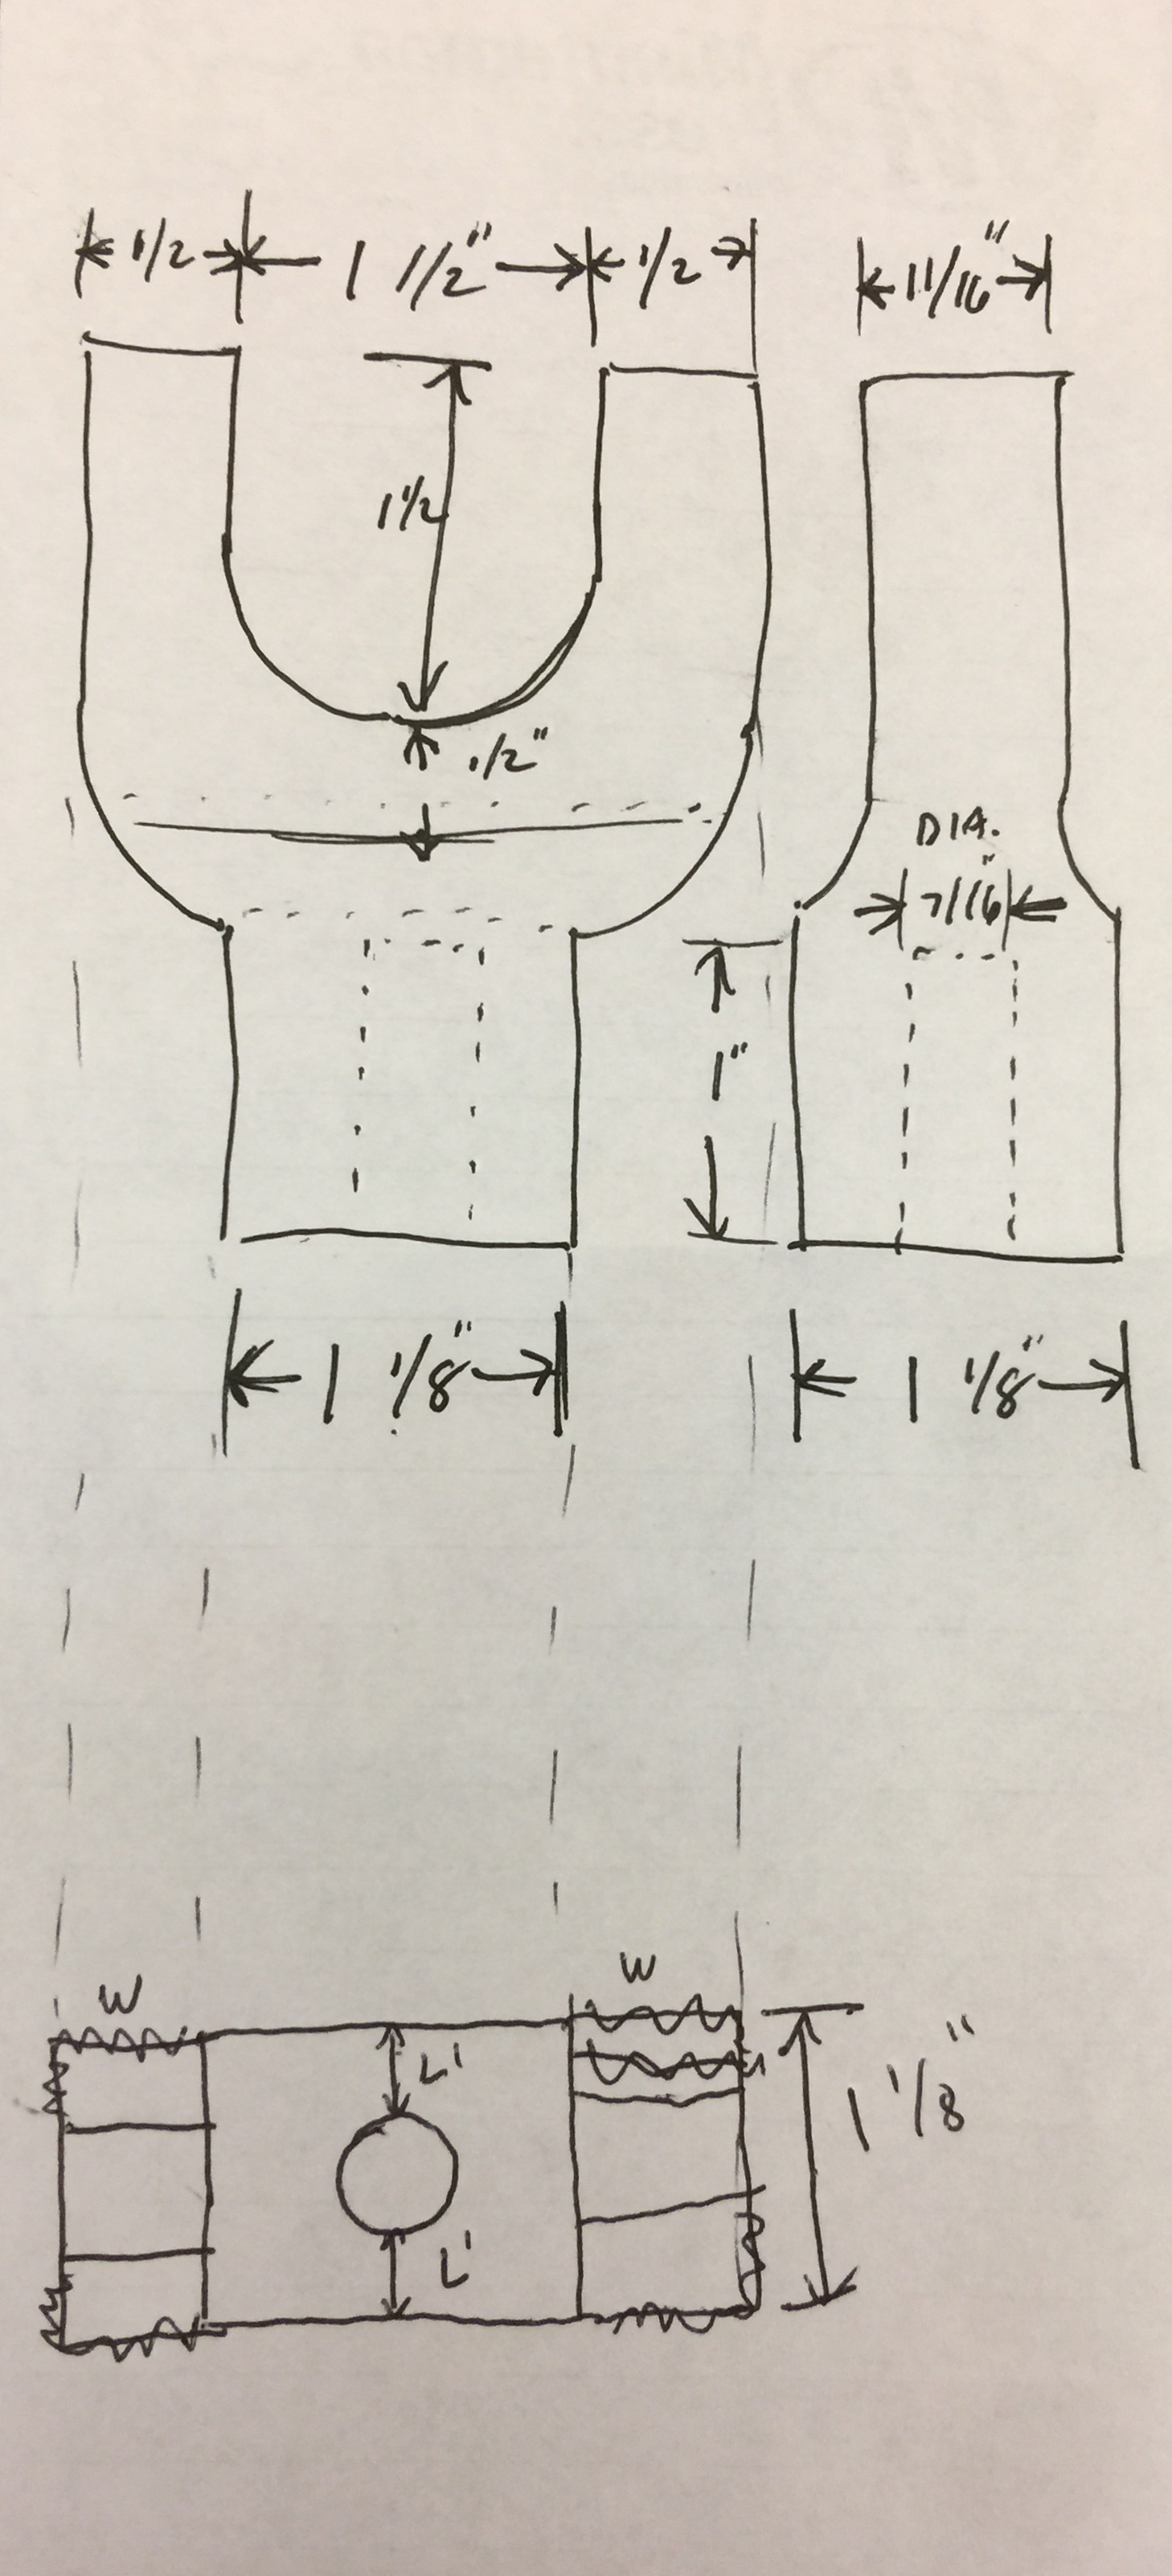 1/2 1 1/2" 1/2 11/16"
1 1/2
1/2"
DIA.
7/16"
1"
1 1/8" 1 1/8"
W W
L'
1 1/8"
L'